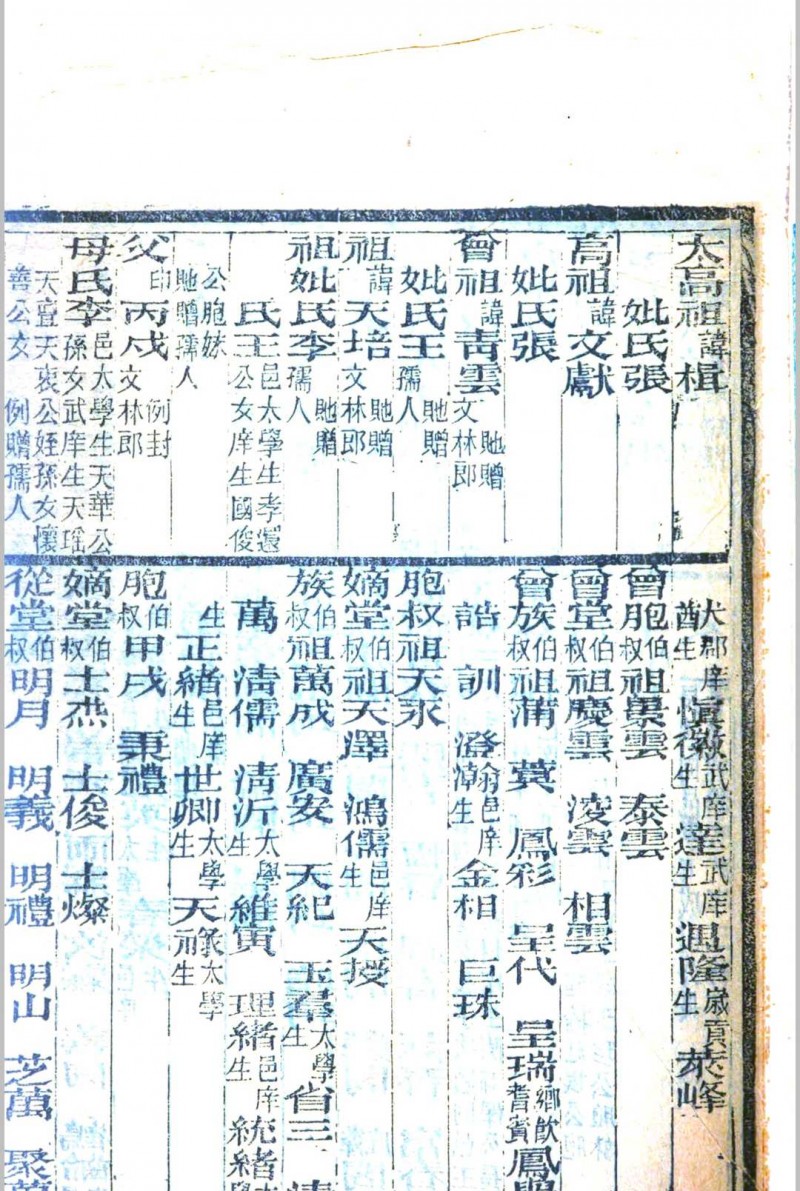 太高祖諱楫
妣氏張
高祖諱文獻
妣氏張
曾祖諱青雲 貤贈文林郎
妣氏王 貤贈孺人
祖諱天培 貤贈文林郎
祖妣氏李 貤贈孺人
氏王 邑太學生孝還公女庠生國俊
公胞妹 貤贈孺人
父印丙戍 例封文林郎
母氏李 邑太學生天華公孫女武庠生天瑤
天亶天衷公姪孫女懷善公女 例贈孺人
武庠生達 武庠生遇隆 歲貢生 峰
曾胞伯叔祖景雲 泰雲
曾堂伯叔祖慶雲 淩雲 相雲
曾族伯叔祖蒲 蓂 鳳彩 呈代 呈瑞 鄉飲耆賓 鳳
誥 訓 澄瀚 邑庠生 金相 巨珠
胞叔祖天永
嫡堂伯叔祖天澤 鴻儒 邑庠生 天授
族伯叔祖萬成 廣安 天紀 玉羣 太學生 省三
萬 清儒 清沂 太學生 維寅 理緒 邑庠生 統緒
生 正緒 邑庠生 世卿 太學生 天 太學生
胞伯叔甲戍 秉禮
嫡堂伯叔士杰 士俊 士燦
從堂伯叔明月 明義 明禮 明山 芝萬 聚